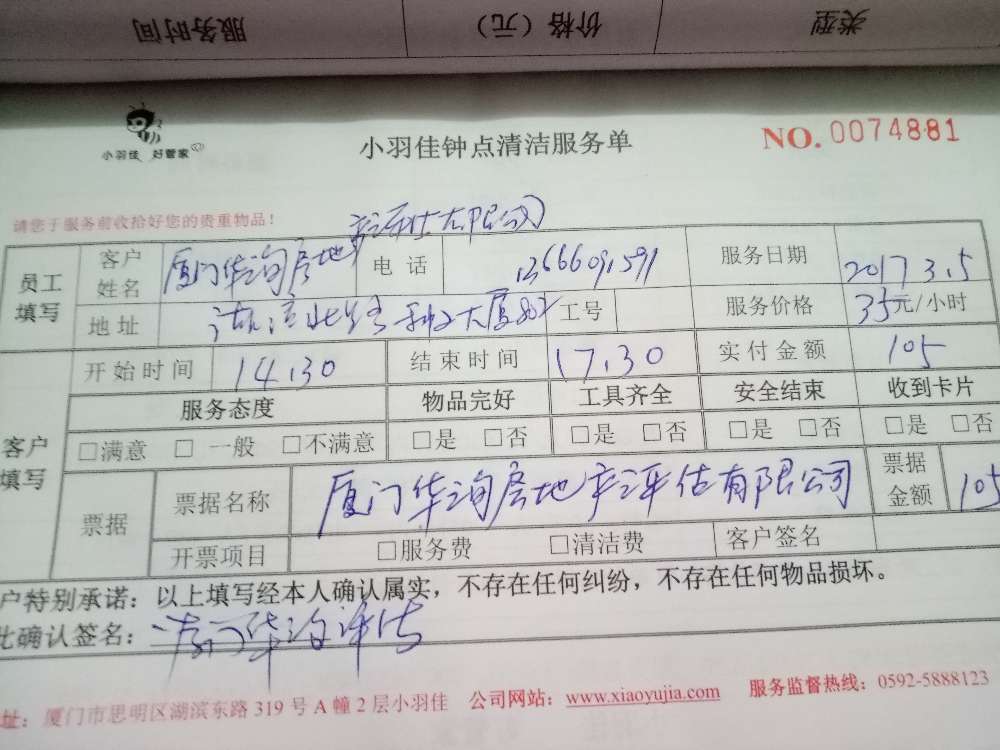 服务时间 价格（元） 类型
小羽佳 好管家
小羽佳钟点清洁服务单
NO. 0074881
请您于服务前收拾好您的贵重物品！
员工填写 客户姓名 厦门华洵房地产评估有限公司 电话 13666091591 服务日期 2017.3.5
地址 湖滨北路 大厦 工号 服务价格 35元/小时
客户填写 开始时间 14:30 结束时间 17:30 实付金额 105
服务态度 物品完好 工具齐全 安全结束 收到卡片
□满意 □一般 □不满意 □是 □否 □是 □否 □是 □否 □是 □否
票据 票据名称 厦门华洵房地产评估有限公司 票据金额 105
开票项目 □服务费 □清洁费 客户签名
户特别承诺：以上填写经本人确认属实，不存在任何纠纷，不存在任何物品损坏。
比确认签名：厦门华洵评估
址：厦门市思明区湖滨东路319号A幢2层小羽佳 公司网站：www.xiaoyujia.com 服务监督热线：0592-5888123